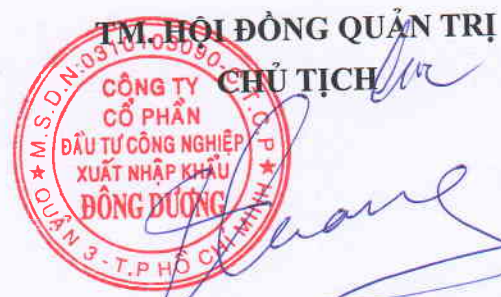 TM. HỘI ĐỒNG QUẢN TRỊ
CHỦ TỊCH
CÔNG TY
CỔ PHẦN
ĐẦU TƯ CÔNG NGHIỆP
XUẤT NHẬP KHẨU
ĐÔNG DƯƠNG
QUẬN 3 - T.P HỒ CHÍ MINH